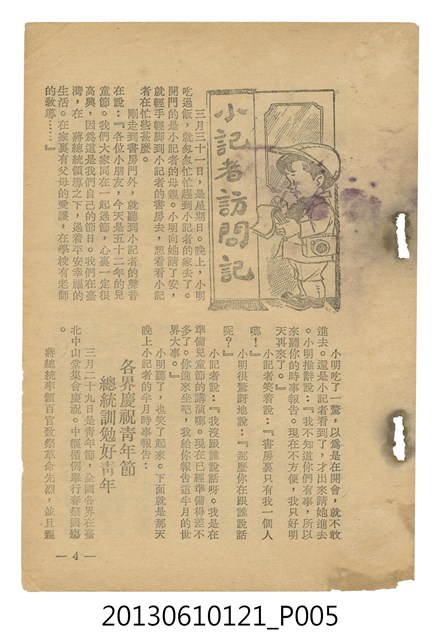 小記者訪問記
三月三十一日，是星期日。晚上，小明
吃過飯，就匆匆忙忙趕到小記者的家去了。
開門的是小記者的母親。小明向她請了安，
就輕手輕腳到小記者的書房去，想看看小記
者在忙些甚麼。
剛走到書房門外，就聽到小記者的聲音
在說：『各位小朋友，今天是五十二年的兒
童節。我們大家同在一起過節，心裏一定很
高興，因為這是我們自己的節日。我們在臺
灣，在 蔣總統領導之下，過着平安幸福的
生活。在家裏有父母的愛護，在學校有老師
的教導……』
小明吃了一驚，以為是在開會，就不敢
進去。還是小記者看到了，才出來請她進去
。小明推辭說：『我不知道你們有事，所以
來聽你的時事報告。現在不方便，我只好明
天再來了。』
小記者笑着說：『書房裏只有我一個人
哪！』
小明很驚訝地說：『那麼你在跟誰說話
呢？』
小記者說：『我沒跟誰說話呀。我是在
準備兒童節的講演哪。現在已經準備得差不
多了。你進來坐吧，我給你報告這半月的世
界大事。』
小明聽了，也笑了起來。下面就是那天
晚上小記者的半月時事報告：
各界慶祝青年節
總統訓勉好青年
三月二十九日是青年節，全國各界在臺
北中山堂集會慶祝。中樞循例舉行春祭國殤
。
蔣總統率領百官致祭革命先烈，並且親
— 4 —
20130610121_P005